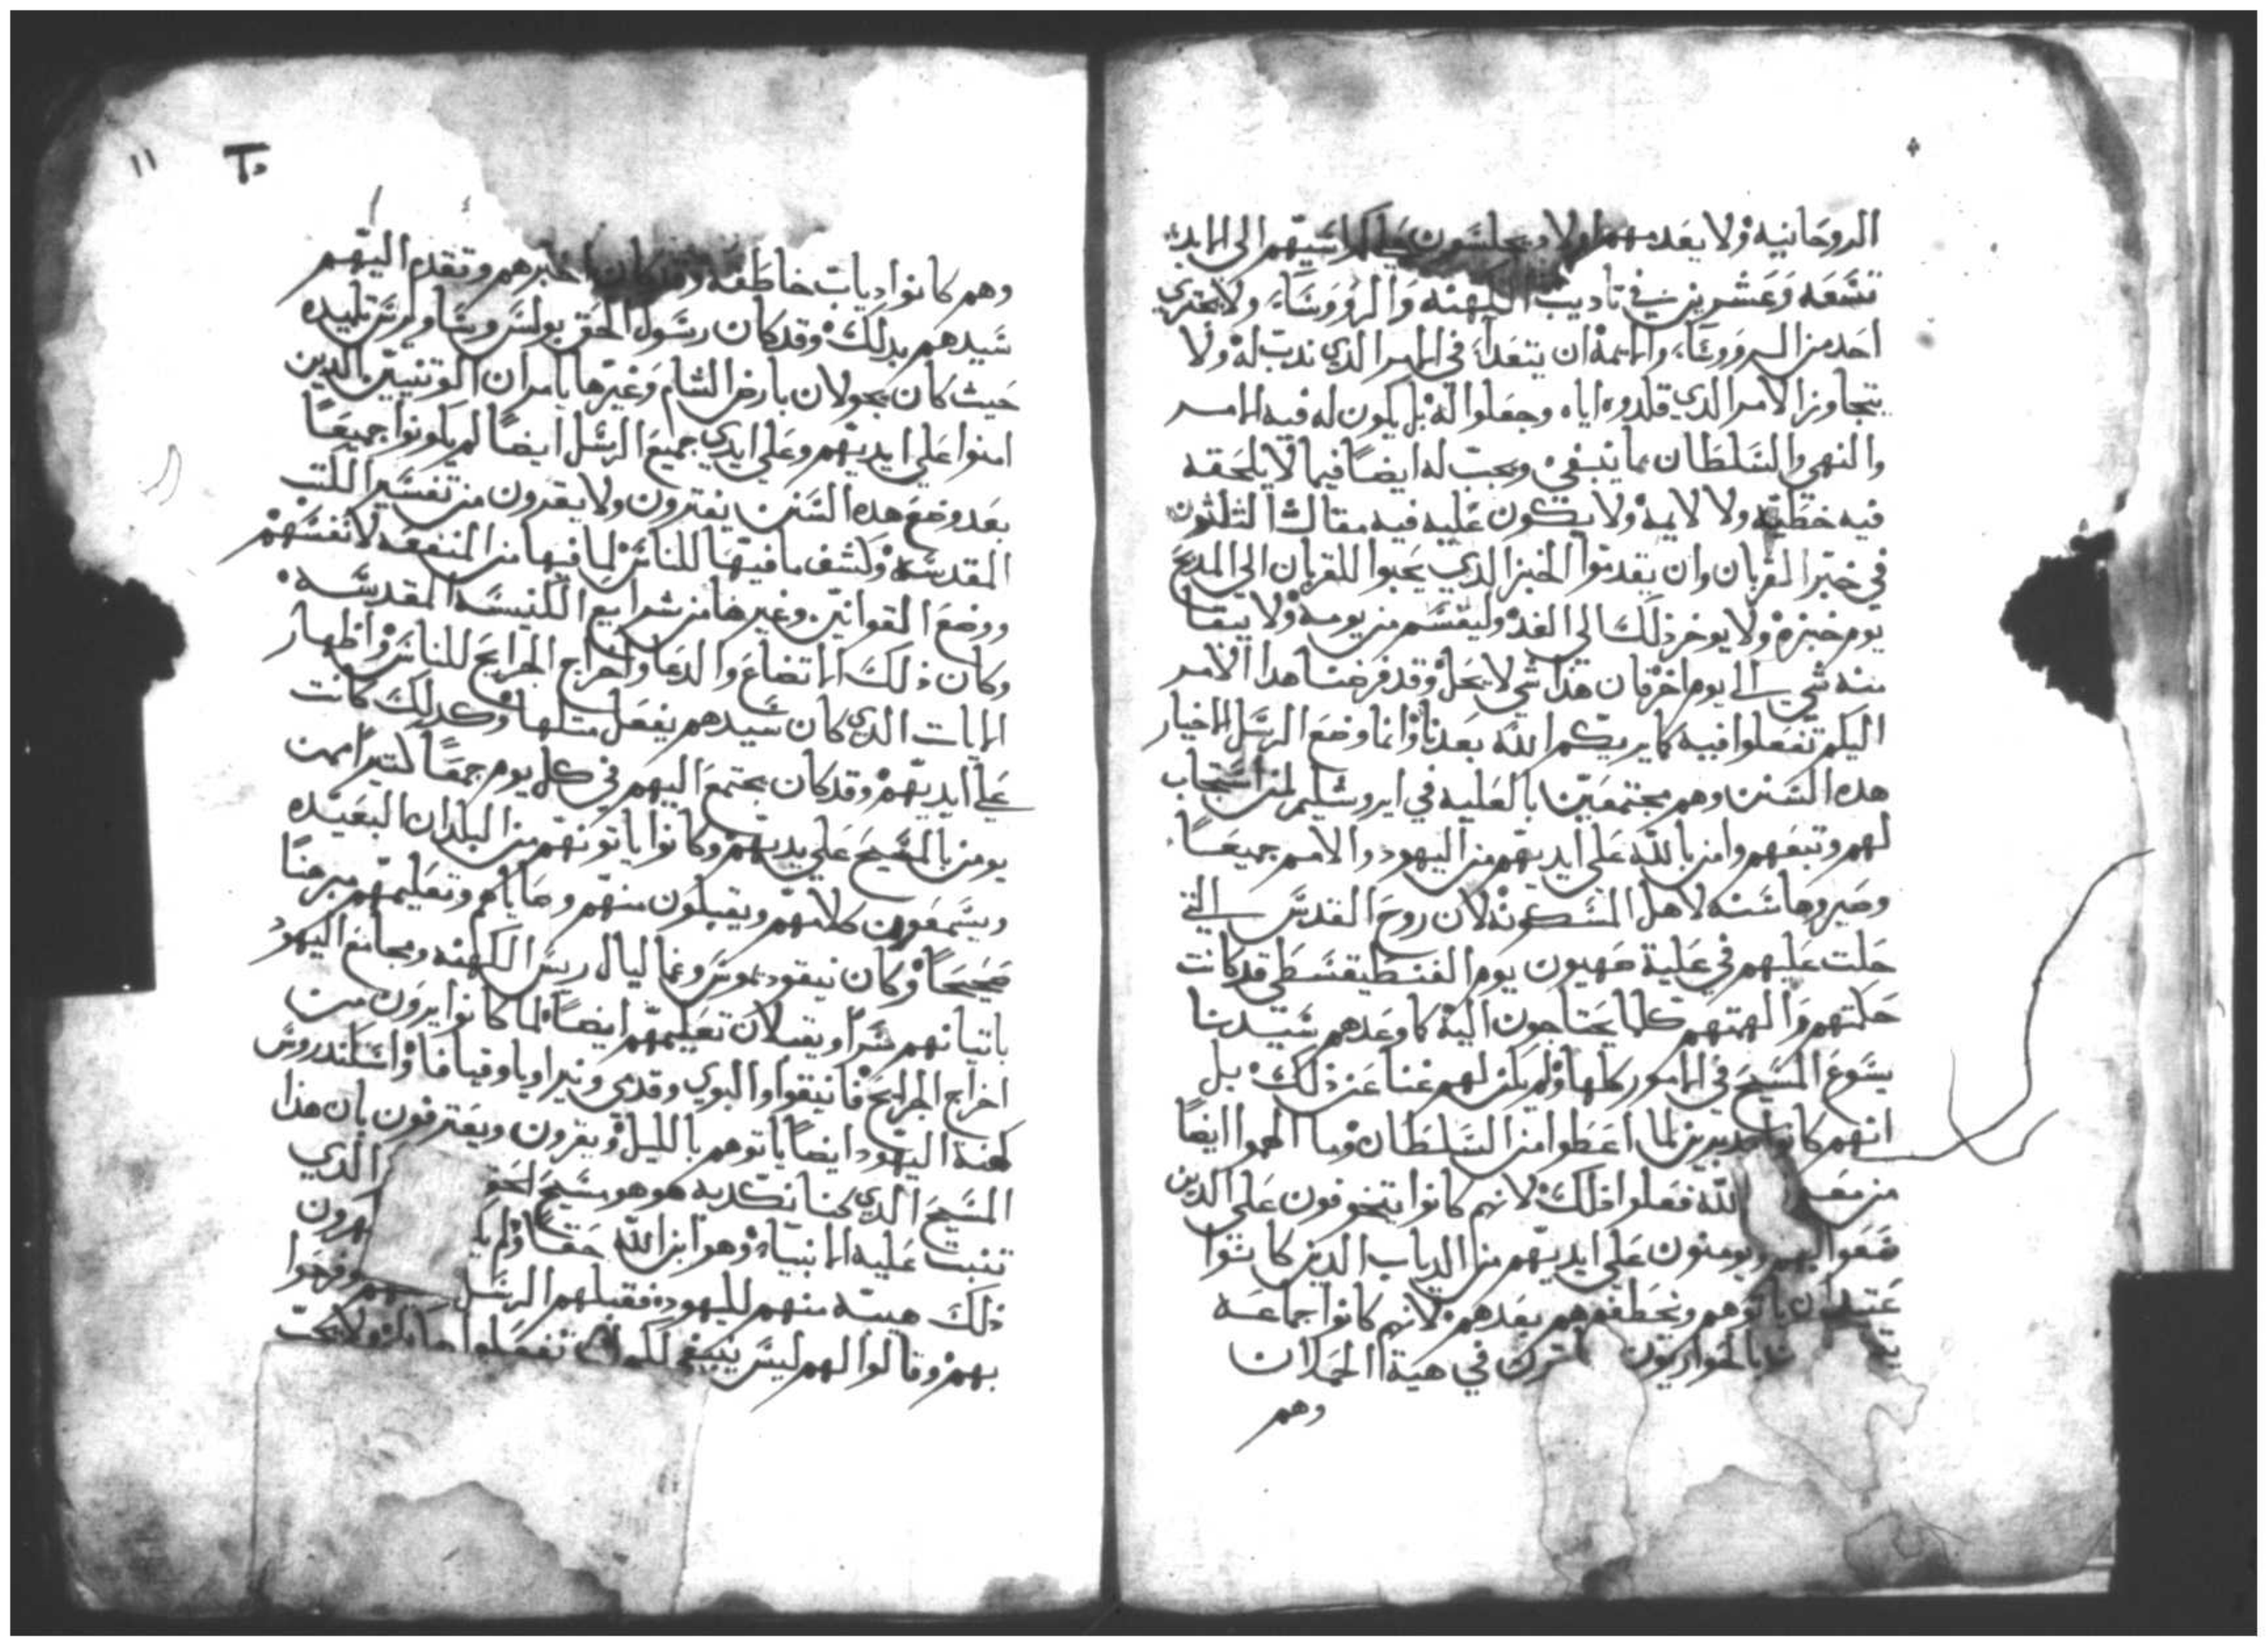 الروحانيه ولا يعدمهم اولاد يجلسون على كراسيهم الى الابد
تسعه وعشرين في تاديب الكهنه والرووسا ولا يجتري
احد من الرووسا والايمه ان يتعدا في الامر الذي ندب له ولا
يتجاوز الامر الذي قلدوه اياه وجعلوا له بل يكون له فيه الامر
والنهي والسلطان بما ينبغي ويجب له ايضا فيما لا يلحقه
فيه خطيه ولا لايمه ولا يكون عليه فيه مقال الثلثون
في خبز القربان وان يقدموا الخبز الذي يحبوا للقربان الي المذبح
يوم خبزه ولا يوخر ذلك الى الغد وليقسم من يومه ولا يبقا
منه شي الى يوم اخر فان هذا شي لا يحل وقد فرضنا هدا الامر
اليكم تفعلوا فيه كما يريكم الله بعدنا وانما وضع الرسل الاخيار
هده السنن وهم مجتمعين بالعليه في ايروشليم لمن استجاب
لهم وتبعهم وامن بالله على ايديهم من اليهود والامم جميعا
وصيروها سنه لاهل المسكونه لان روح القدس التي
حلت عليهم في علية صهيون يوم الفنطيقسطي قد كانت
حكمتهم والهمتهم كلما يحتاجون اليه كما وعدهم سيدنا
يسوع المسيح في الامور كلها ولم يكن لهم غنا عن ذلك بل
انهم كانوا جديرين لما اعطوا من السلطان وما الهموا ايضا
من الله ففعلوا ذلك لانهم كانوا يتخوفون على الدين
ويومنون على ايديهم من الدياب الدين كانوا
ياتوهم ويخطفوهم بعدهم لانهم كانوا جماعه
بالحواريون في هية الحملان
وهم
١١
وهم كانوا دياب خاطفه وقد كان اخبرهم وتقدم اليهم
سيدهم بدلك وقد كان رسول الحق بولس وسا ولوس تلميده
حيث كان يجولان بارض الشام وغيرها يامران الوتنيين الدين
امنوا على ايديهم وعلي ايدي جميع الرسل ايضا لم يكونوا جميعا
بعد وضع هده السنن يفترون ولا يقدون من تفسير الكتب
المقدسه وكشف ما فيها للناس لما فيها من المنفعه لانفسهم
ووضع القوانين وغيرها من شرايع الكنيسه المقدسه
وكان ذلك الاتضاع والدعا واخراج الجرايح للناس واظهار
الايات الدي كان سيدهم يفعل متلها وكدلك كانت
على ايديهم وقد كان يجتمع اليهم في كل يوم جمعا كتيرا ممن
يومن بالمسيح على يديهم وكانوا ياتونهم من البلدان البعيده
ويسمعون كلامهم ويقبلون منهم وصاياهم وتعليمهم مبرهنا
صحيحا وكان نيقوديموس وغماليال ريس الكهنه ومجامع اليهود
ياتيانهم سرا ويقبلان تعليمهم ايضا لما كانوا يرون من
اخراج الجرايح فانيقوا والبوي وقدي ونيراويا وقيافا واسكندروس
كهنة اليهود ايضا ياتوهم بالليل ويقرون ويعترفون بان هذا
المسيح الدي كنا نكدبه هو هو مسيح الذي
تنبت عليه الانبياء وهو ابن الله حقا ولم
ذلك هيبه منهم لليهود فقبلهم الرسل وفرحوا
بهم وقالوا لهم ليس ينبغي لكم ان تفعلوا ولا يجب